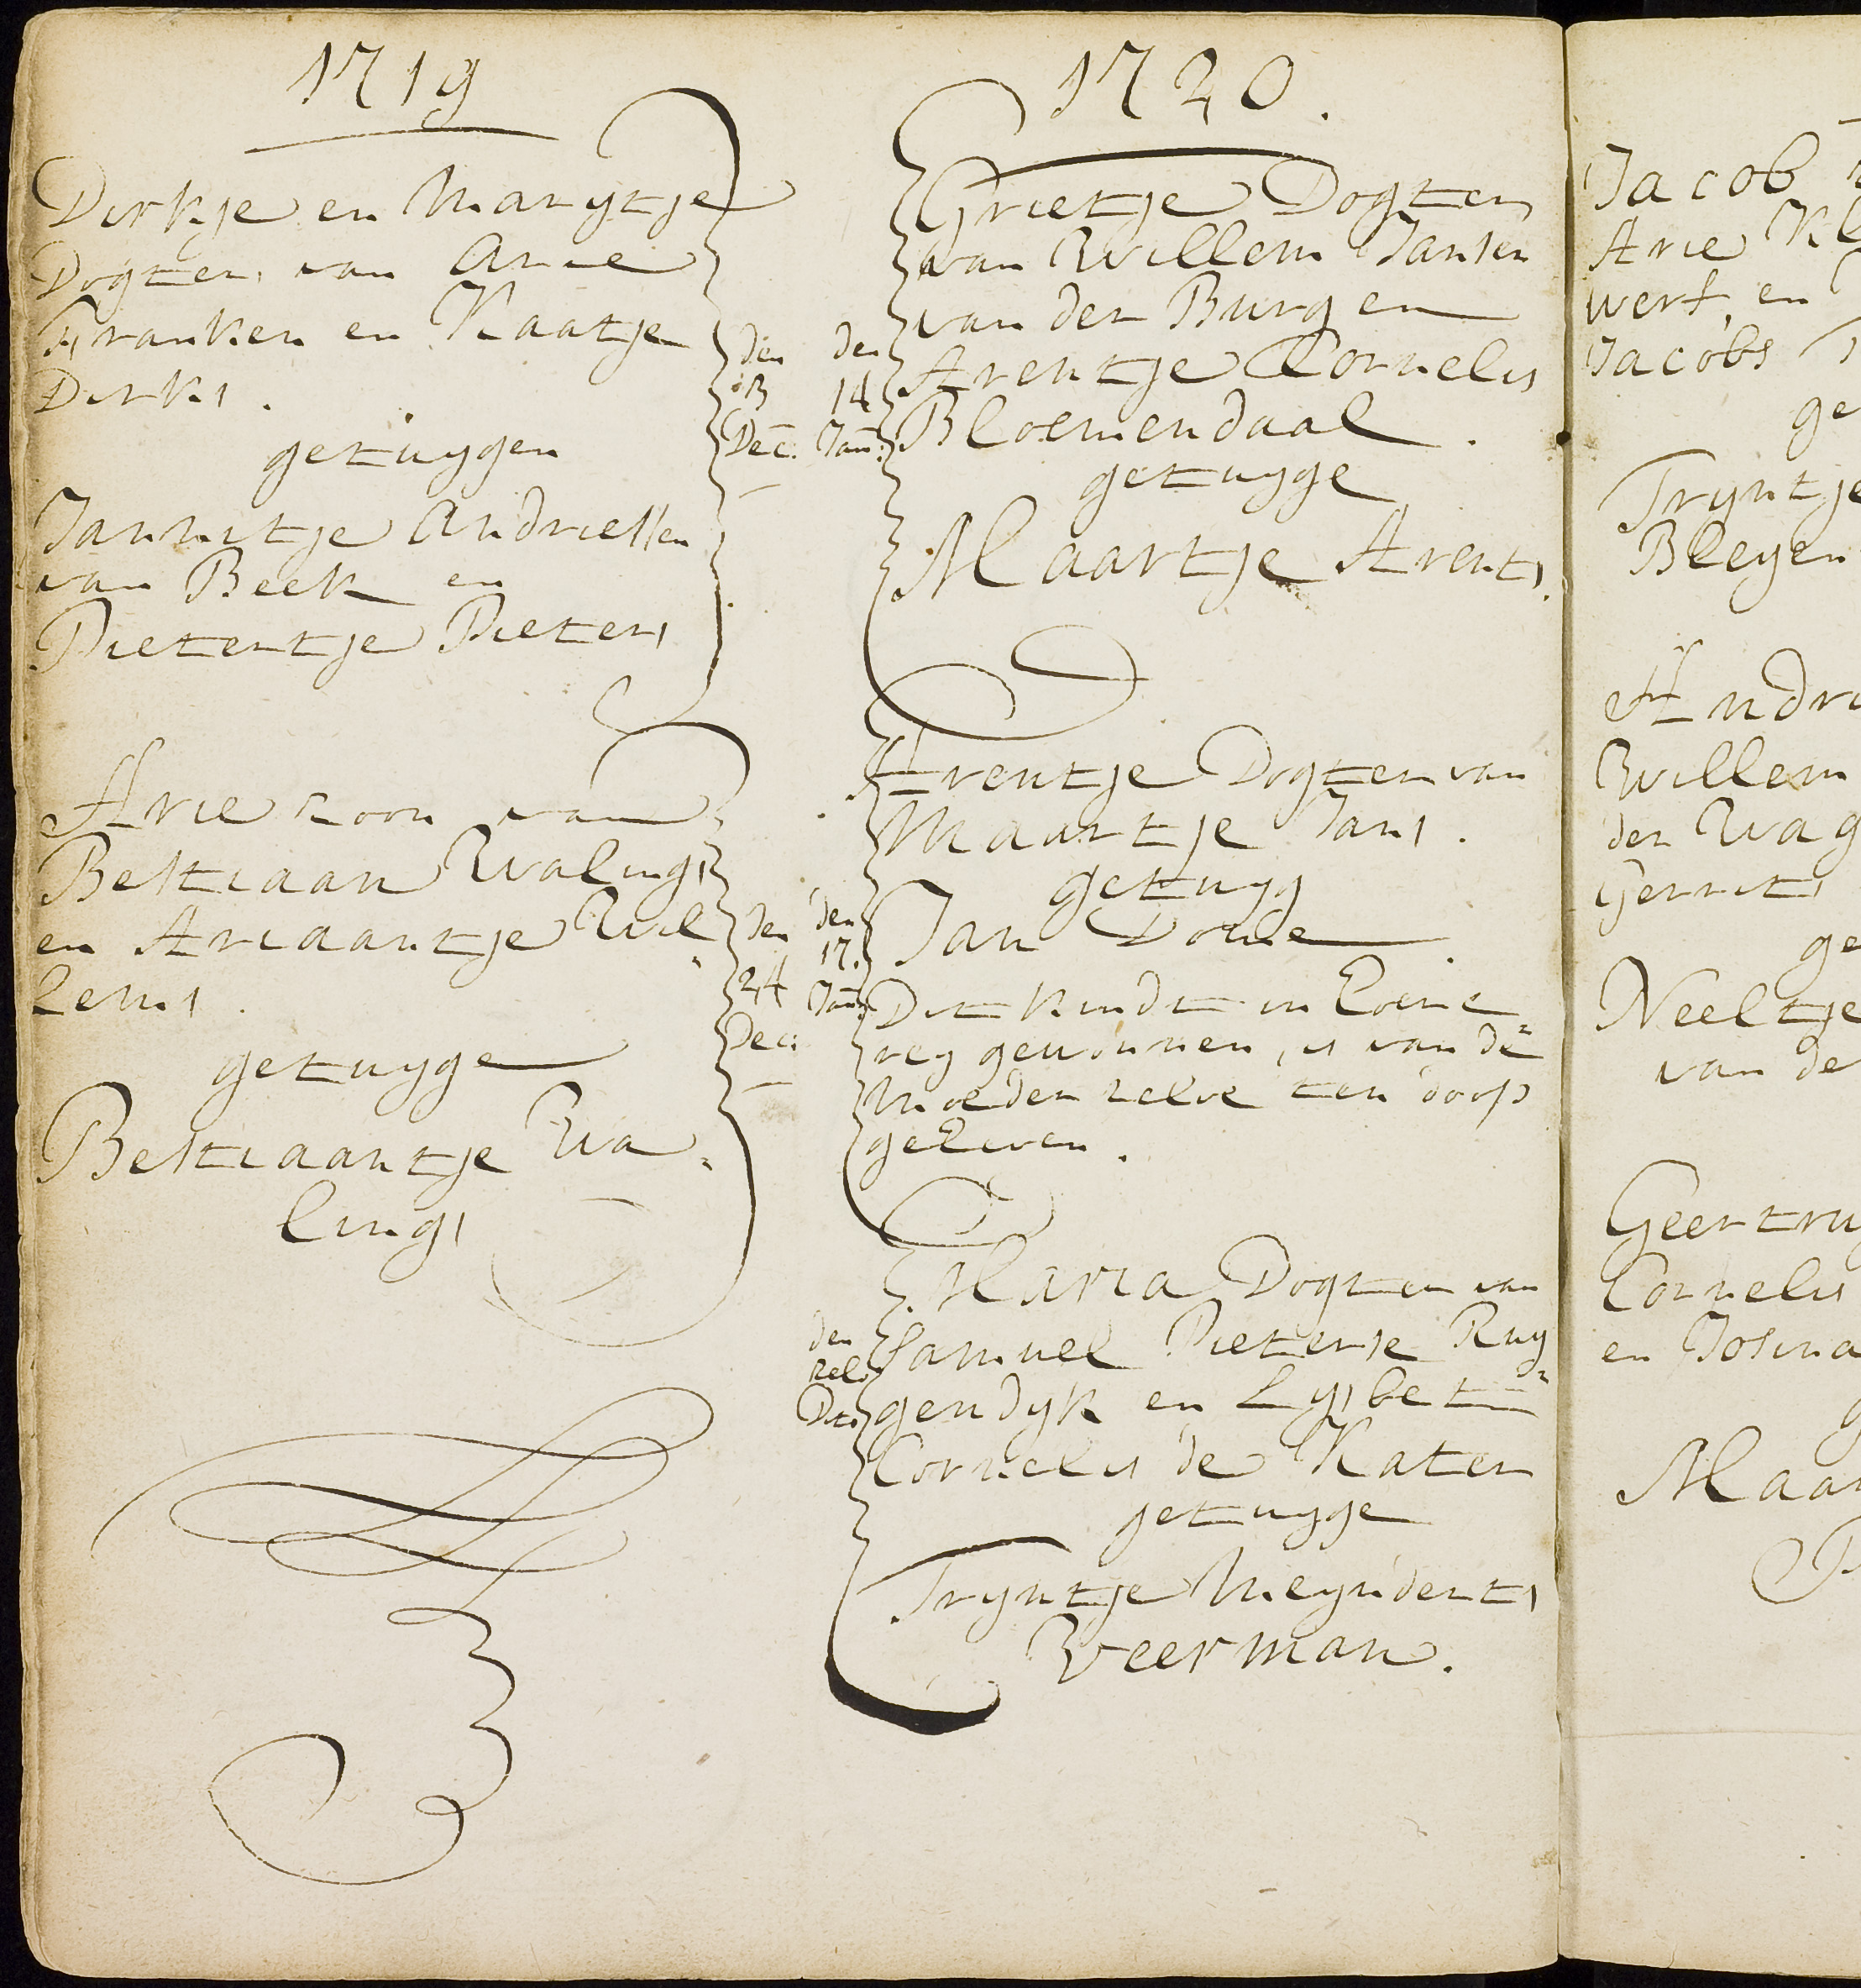 1719
Dirkje en Marijtje
Dogters van Arie
Franken en Kaatje
Dirks.
getuygen
Jannitje Andriessen
van Beek en
Pietertje Pieters
den
13
Dec:
Arie zoon van
Bestiaan Walings
en Ariaantje Wil„
lems.
getuyge
Bestiaantje Wa„
lings
den
24
Dec:
1720.
Grietje Dogter
van Willem Jansen
van der Burg en
Arentje Cornelis
Bloemendaal.
getuyge
Maartje Arents.
den
14
Jan:
Arentje Dogter van
Maartje Jans.
getuyg
Jan Douwe.
Dit kindt in hoere„
rey gewonnen, is van de
Moeder selve ten doop
geheven.
den
17.
Jan:
Maria Dogter van
Samuel Pieterse Ruy„
gendyk en Lysbet
Cornelis de Kater
getuyge
Tryntje Meynderts
Veerman.
den
zel.
Dito
Jacob
Arie Kl
werf, en
Jacobs
ge
Tryntje
Bleyen
Andri
Willem
der Wag
Gerrits
ge
Neeltje
van de
Geertruy
Cornelis
en Josina
g
Maar
P